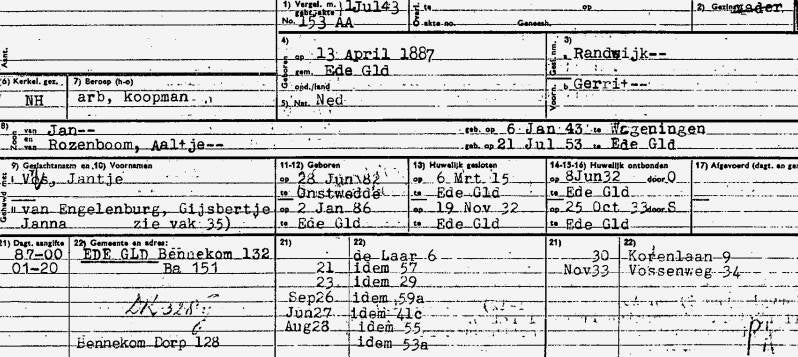 1) Vergel. m. 1Jul43 Overl. te op 2) Gezins
gebr.akte
No. 153 AA O-akte-no. Geneesh.
4) 3)
Geboren op 13 April 1887 Gesl.nm. a Randwijk--
gem. Ede Gld
ond./land Voorn. b Gerrit--
5) Nat. Ned
Aant.
6) Kerkel. gez. 7) Beroep (h-o)
NH arb, koopman
8) Zoon van Jan-- geb. op 6 Jan 43 te Wageningen
en van Rozenboom, Aaltje-- geb. op 21 Jul 53 te Ede Gld
9) Geslachtsnaam en 10) Voornamen 11-12) Geboren 13) Huwelijk gesloten 14-15-16) Huwelijk ontbonden 17) Afgevoerd (dagt. en
Gehuwd met I Vos, Jantje op 28 Jun 82 op 6 Mrt 15 op 8Jun32 door O
te Onstwedde te Ede Gld te Ede Gld
II van Engelenburg, Gijsbertje op 2 Jan 86 op 19 Nov 32 op 25 Oct 33 door S
Janna zie vak 35) te Ede Gld te Ede Gld te Ede Gld
21) Dagt. aangifte 22) Gemeente en adres: 21) 22) 21) 22)
87-00 EDE GLD Bennekom 132 de Laar 6 30 Korenlaan 9
01-20 Ba 151 21 idem 57 Nov33 Vossenweg 34
23 idem 29
Sep26 idem 59a
Jun27 idem 41c
Aug28 idem 55
Bennekom Dorp 128 idem 53a